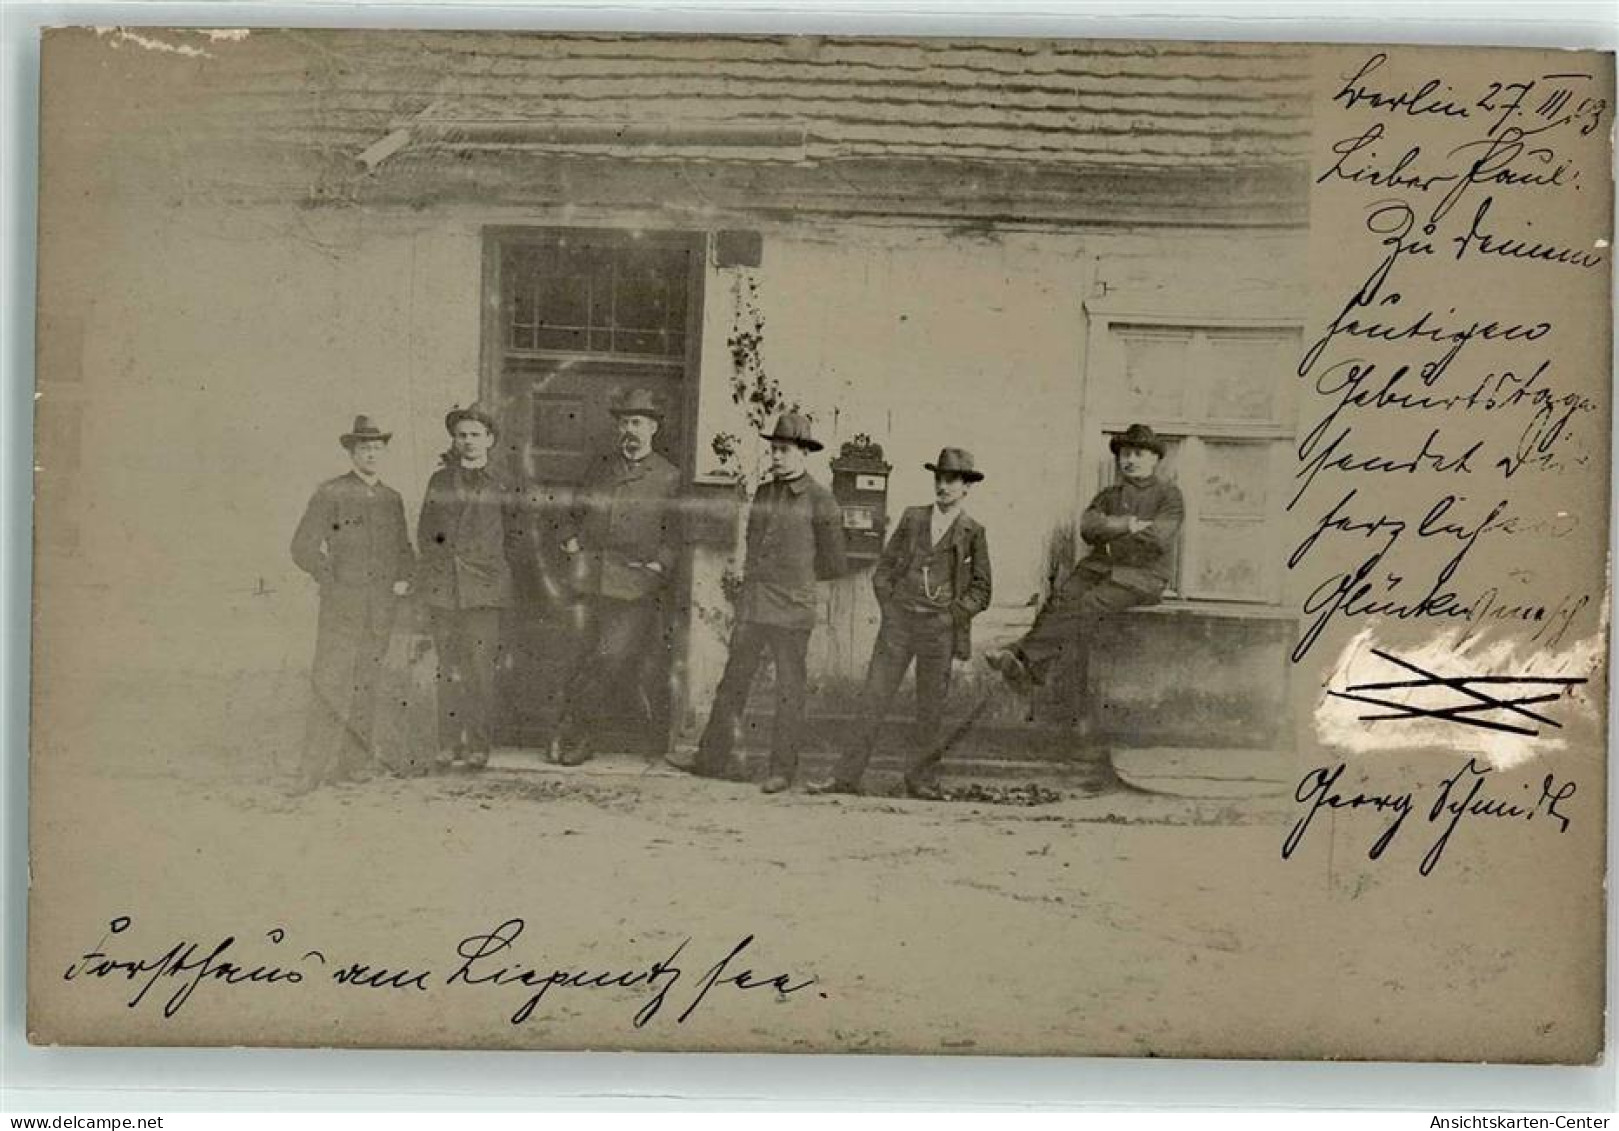 Berlin 27. III. 03
Lieber Paul!
Zu Deinem
heutigen
Geburtstage
sendet Dir
herzlichen
Glückwunsch
Georg Schmidt
Forsthaus am Liepnitz see.
Ansichtskarten-Center